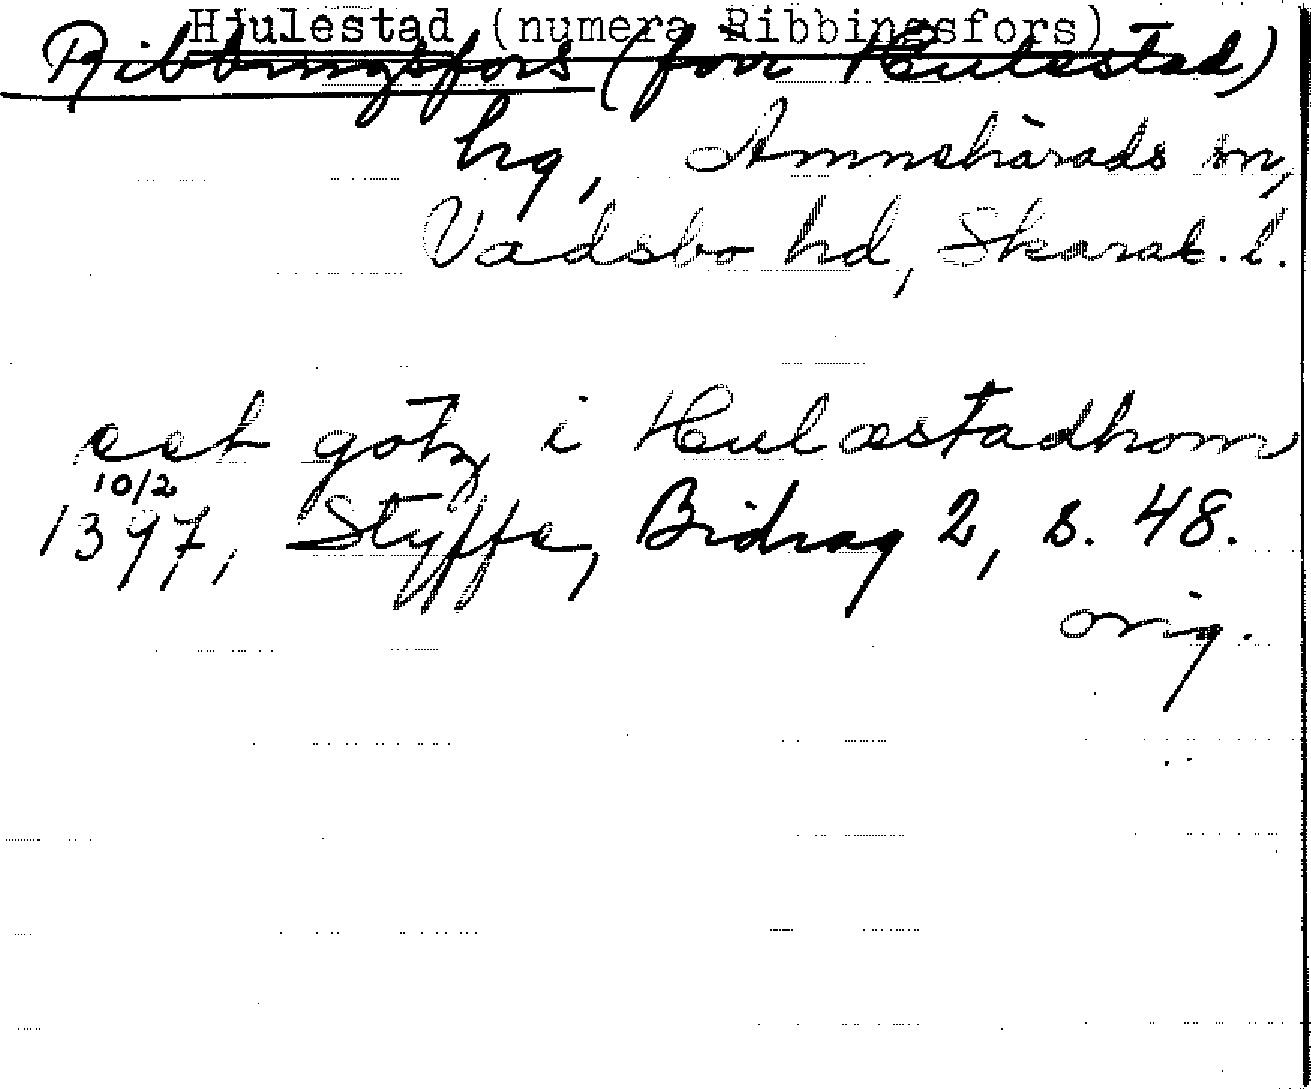 Hjulestad (numera Ribbingsfors)
Ribbingsfors (förr Hulestad)
hg, Amnehärads sn,
Vadsbo hd, Skarab. l.
eet götz i Hulæstadhom
10/2
1397, Styffe, Bidrag 2, s. 48.
orig.